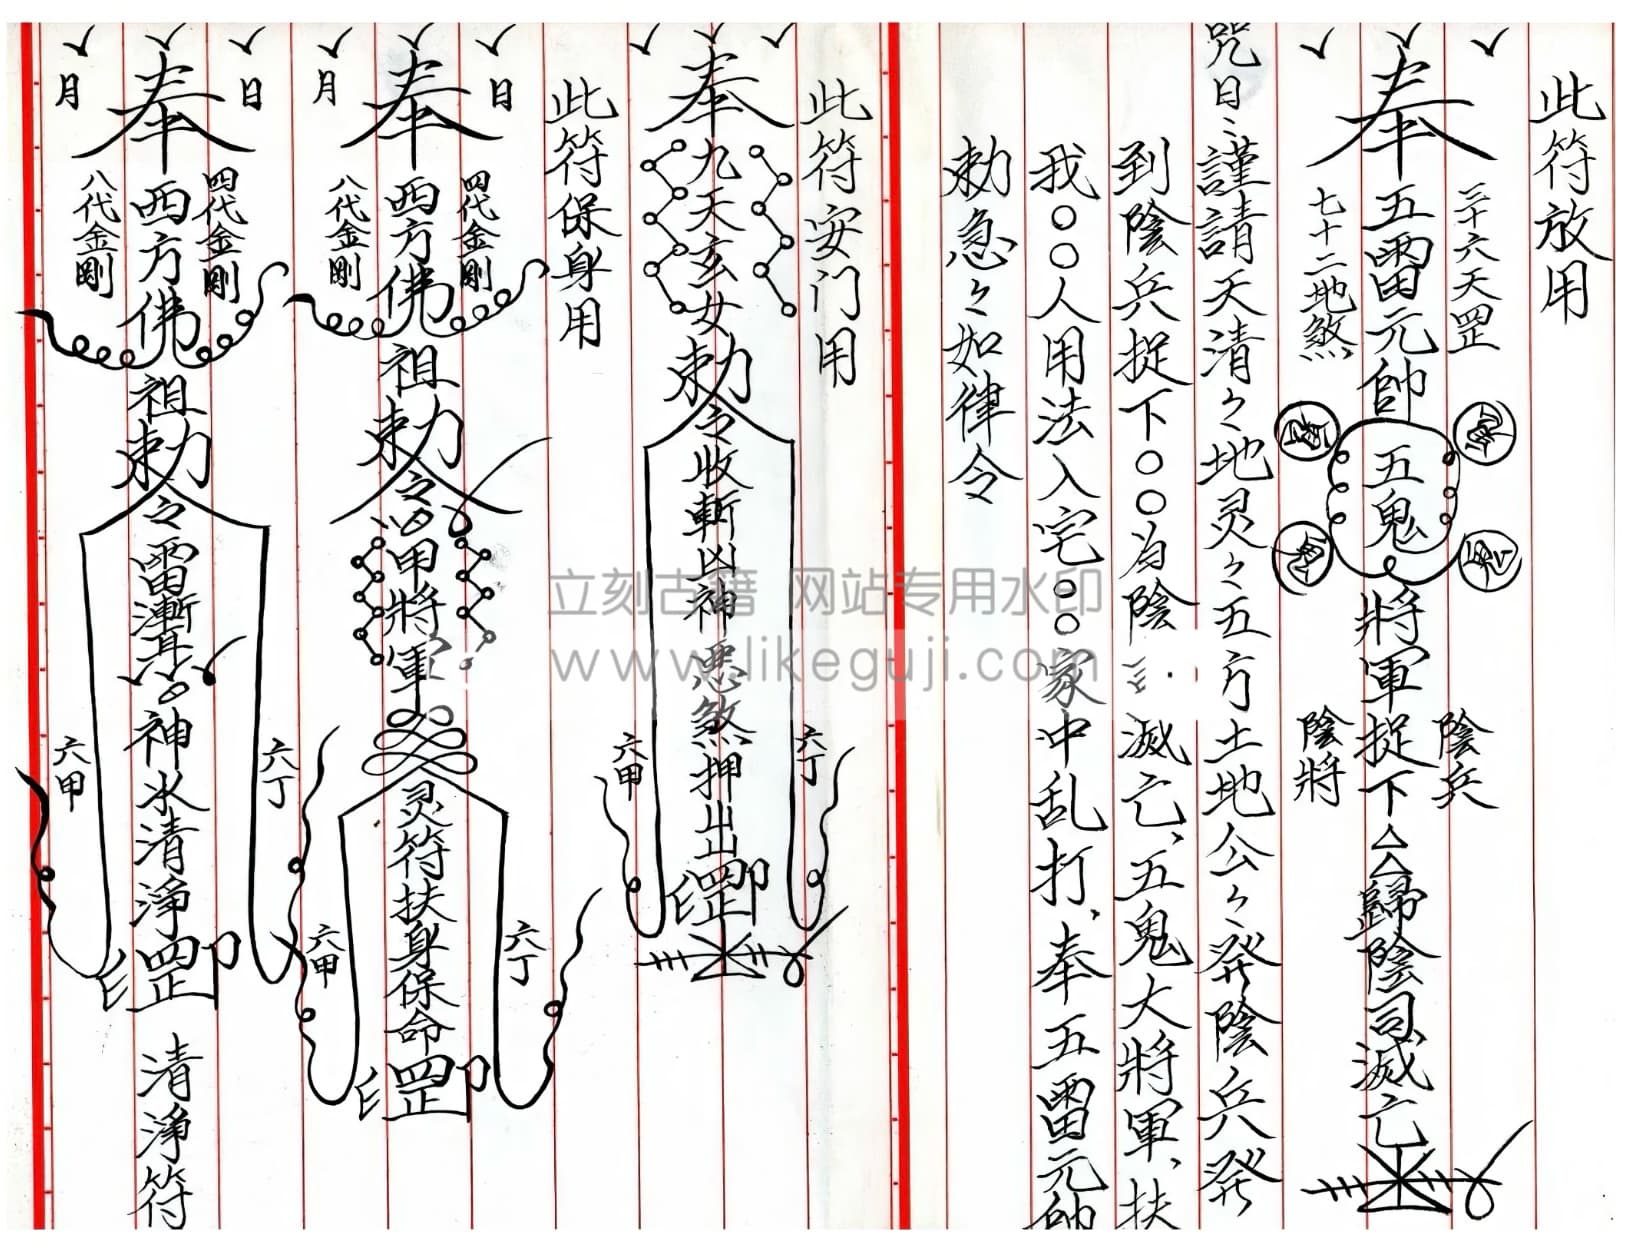 此符放用
三十六天罡
奉五雷元帥五鬼將軍捉下歸陰司滅亡
七十二地煞
陰兵
陰將
咒曰：謹請天清々地灵々五方土地公々發陰兵發
到陰兵捉下○○為陰 滅亡、五鬼大將軍、扶
我○○人用法入宅○○家中乱打、奉五雷元帥
勅急々如律令
此符安门用
奉九天玄女勅令收斬凶神惡煞押出罡印
六丁
六甲
此符保身用
日
月
四代金剛
奉西方佛祖勅令甲將軍灵符扶身保命罡印
八代金剛
六丁
六甲
日
月
四代金剛
奉西方佛祖勅令雷漸 神水清淨罡印
八代金剛
六丁
六甲
清淨符
立刻古籍 网站专用水印
www.likeguji.com